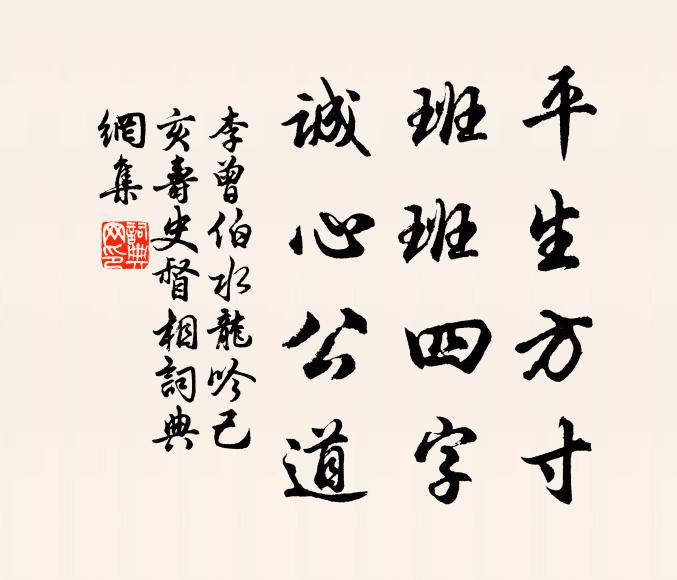 平生方寸
班班四字
誠心公道
李曾伯水龍吟己
亥壽史督相詞典
網集
詞典网印